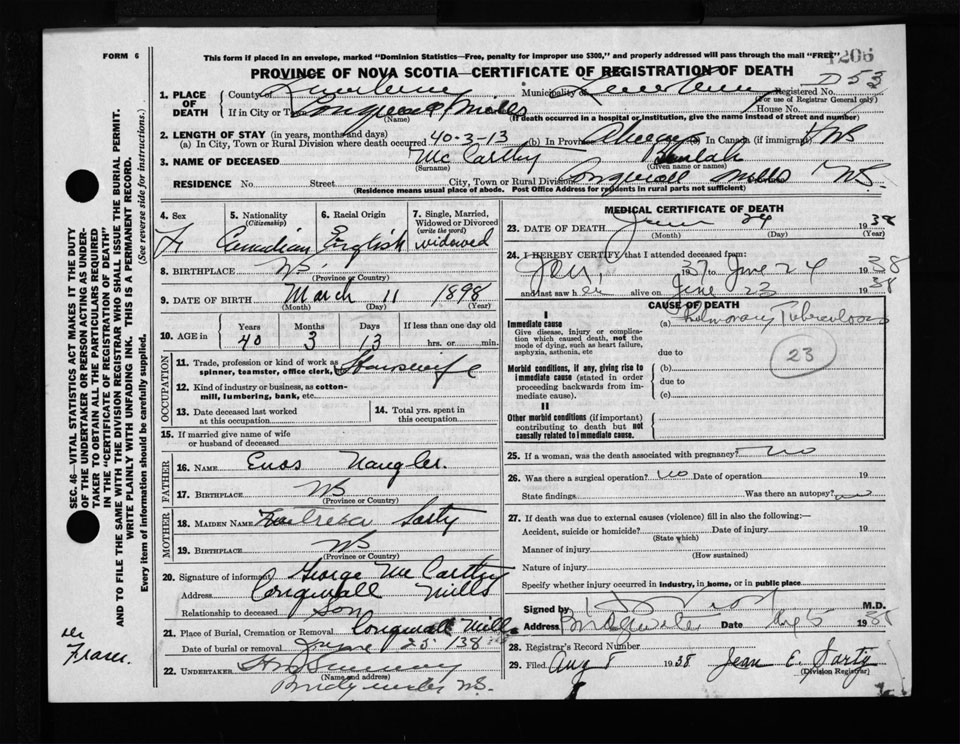 FORM 6
This form if placed in an envelope, marked "Dominion Statistics—Free, penalty for improper use $300," and properly addressed will pass through the mail "FREE"
206
PROVINCE OF NOVA SCOTIA—CERTIFICATE OF REGISTRATION OF DEATH
D 53
1. PLACE OF DEATH
County of Lunenburg Municipality of Lunenburg Registered No.
(For use of Registrar General only)
If in City or Mills House No.
(Name) (If death occurred in a hospital or institution, give the name instead of street and number)
2. LENGTH OF STAY (in years, months and days)
(a) In City, Town or Rural Division where death occurred 40-3-13 (b) In Province Always (c) In Canada (if immigrant)
3. NAME OF DECEASED McCarthy Beulah
(Surname) (Given name or names)
RESIDENCE No. Street City, Town or Rural Division Mills NS.
(Residence means usual place of abode. Post Office Address for residents in rural parts not sufficient)
4. Sex F
5. Nationality (Citizenship) Canadian
6. Racial Origin English
7. Single, Married, Widowed or Divorced (write the word) widowed
8. BIRTHPLACE NS.
(Province or Country)
9. DATE OF BIRTH March 11 1898
(Month) (Day) (Year)
10. AGE in Years 40 Months 3 Days 13 If less than one day old hrs. or min.
OCCUPATION
11. Trade, profession or kind of work as spinner, teamster, office clerk, Housewife
12. Kind of industry or business, as cotton-mill, lumbering, bank, etc.
13. Date deceased last worked at this occupation
14. Total yrs. spent in this occupation
15. If married give name of wife or husband of deceased
FATHER
16. NAME Enos Naugler.
17. BIRTHPLACE NS
(Province or Country)
MOTHER
18. MAIDEN NAME Sarty
19. BIRTHPLACE NS
(Province or Country)
20. Signature of informant George McCarthy
Address Mills
Relationship to deceased Son
21. Place of Burial, Cremation or Removal Mills
Date of burial or removal June 25 1938
22. UNDERTAKER
(Name and address)
Bridgewater NS.
MEDICAL CERTIFICATE OF DEATH
23. DATE OF DEATH June 24 1938
(Month) (Day) (Year)
24. I HEREBY CERTIFY that I attended deceased from:
Jan, 1937 to June 24 1938
and last saw her alive on June 23 1938
CAUSE OF DEATH
I
Immediate cause
Give disease, injury or complication which caused death, not the mode of dying, such as heart failure, asphyxia, asthenia, etc
(a) Pulmonary Tuberculosis
due to
23
Morbid conditions, if any, giving rise to immediate cause (stated in order proceeding backwards from immediate cause).
(b)
due to
(c)
II
Other morbid conditions (if important) contributing to death but not causally related to immediate cause.
25. If a woman, was the death associated with pregnancy? no
26. Was there a surgical operation? no Date of operation 19
State findings Was there an autopsy? no
27. If death was due to external causes (violence) fill in also the following:—
Accident, suicide or homicide? Date of injury 19
(State which)
Manner of injury
(How sustained)
Nature of injury
Specify whether injury occurred in industry, in home, or in public place
Signed by M.D.
Address Bridgewater Date Aug 5 1938
28. Registrar's Record Number
29. Filed Aug 8 1938 Jean E. Sarty
(Division Registrar)
SEC. 46—VITAL STATISTICS ACT MAKES IT THE DUTY
OF THE UNDERTAKER OR PERSON ACTING AS UNDER-
TAKER TO OBTAIN ALL THE PARTICULARS REQUIRED
IN THE "CERTIFICATE OF REGISTRATION OF DEATH"
AND TO FILE THE SAME WITH THE DIVISION REGISTRAR WHO SHALL ISSUE THE BURIAL PERMIT.
WRITE PLAINLY WITH UNFADING INK. THIS IS A PERMANENT RECORD.
Every item of information should be carefully supplied. (See reverse side for instructions.)
Fraser.